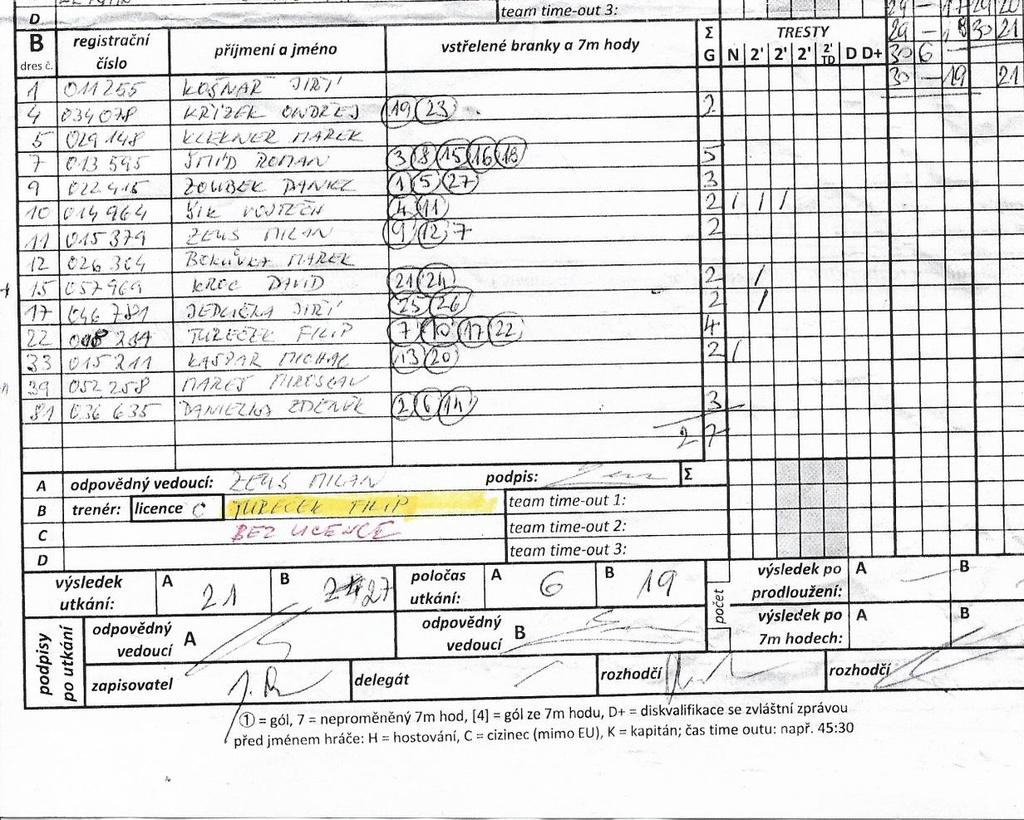 D team time-out 3:
29 - 17 29 20
29 - 18 30 21
30 6
30 - 19 21
B dres č. registrační číslo příjmení a jméno vstřelené branky a 7m hody Σ G TRESTY N 2' 2' 2' 2' TD D D+
1 011255 KOŠNAR JIŘÍ
4 034078 KŘÍŽEK ONDŘEJ 19 23 2
5 029148 KLEKNER MAREK
7 013595 ŠMÍD ROMAN 3 8 15 16 18 5
9 022415 ZOUBEK DANIEL 1 5 27 3
10 014964 ŠIK VOJTĚCH 4 11 2 / / /
11 015379 ZEUS MILAN 9 12 7 2
12 026304 MAREK
15 057969 KROC DAVID 21 24 2 /
17 046781 JEDLIČKA JIŘÍ 25 26 2 /
22 TUREČEK FILIP 7 10 17 22 4
33 015211 KAŠPAR MICHAL 13 20 2 /
39 052258 MAREŠ MIROSLAV
81 036635 ZDENĚK 2 6 14 3
27
A odpovědný vedoucí: ZEUS MILAN podpis: Σ
B trenér: licence C TUREČEK FILIP team time-out 1:
C BEZ LICENCE team time-out 2:
D team time-out 3:
výsledek utkání: A 21 B 27 poločas utkání: A 6 B 19 počet výsledek po prodloužení: A B
výsledek po 7m hodech: A B
podpisy po utkání odpovědný vedoucí A odpovědný vedoucí B
zapisovatel delegát rozhodčí rozhodčí
① = gól, 7 = neproměněný 7m hod, [4] = gól ze 7m hodu, D+ = diskvalifikace se zvláštní zprávou
před jménem hráče: H = hostování, C = cizinec (mimo EU), K = kapitán; čas time outu: např. 45:30